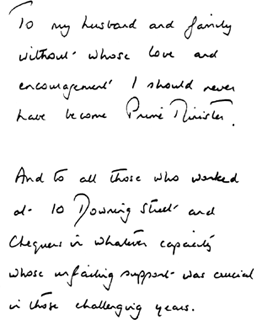 To my husband and family
without whose love and
encouragement I should never
have become Prime Minister.
And to all those who worked
at 10 Downing Street and
Chequers in whatever capacity
whose unfailing support was crucial
in those challenging years.